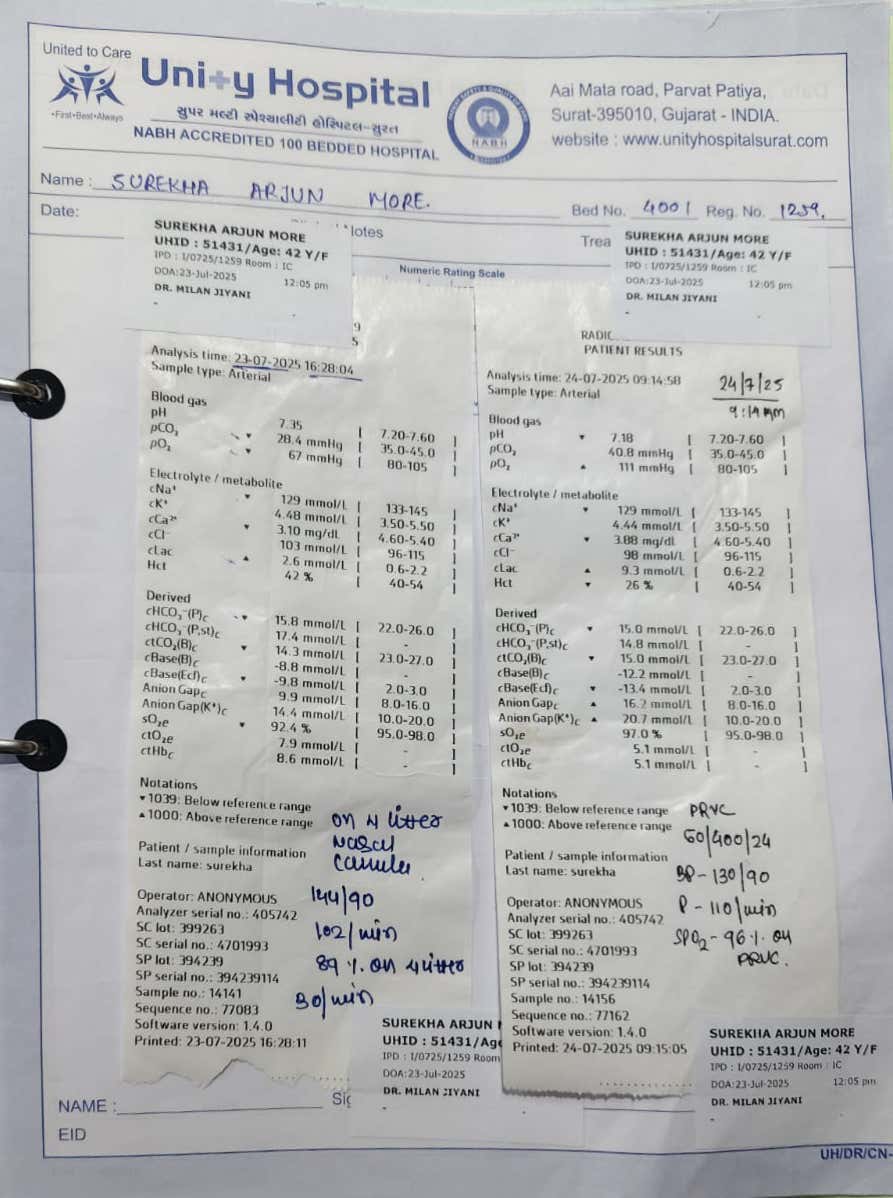 United to Care
Unity Hospital
•First•Best•Always
સુપર મલ્ટી સ્પેશ્યાલીટી હોસ્પિટલ-સુરત
NABH ACCREDITED 100 BEDDED HOSPITAL
NABH
Aai Mata road, Parvat Patiya,
Surat-395010, Gujarat - INDIA.
website : www.unityhospitalsurat.com
Name : SUREKHA ARJUN MORE.
Bed No. 4001 Reg. No. 1259.
Date:
Notes
Trea
Numeric Rating Scale
SUREKHA ARJUN MORE
UHID : 51431/Age: 42 Y/F
IPD : I/0725/1259 Room : IC
DOA:23-Jul-2025 12:05 pm
DR. MILAN JIYANI
Analysis time: 23-07-2025 16:28:04
Sample type: Arterial
Blood gas
pH 7.35 [ 7.20-7.60 ]
pCO₂ ▾ 28.4 mmHg [ 35.0-45.0 ]
pO₂ ▾ 67 mmHg [ 80-105 ]
Electrolyte / metabolite
cNa⁺ ▾ 129 mmol/L [ 133-145 ]
cK⁺ 4.48 mmol/L [ 3.50-5.50 ]
cCa²⁺ ▾ 3.10 mg/dL [ 4.60-5.40 ]
cCl⁻ 103 mmol/L [ 96-115 ]
cLac ▴ 2.6 mmol/L [ 0.6-2.2 ]
Hct 42 % [ 40-54 ]
Derived
cHCO₃⁻(P)c ▾ 15.8 mmol/L [ 22.0-26.0 ]
cHCO₃⁻(P,st)c 17.4 mmol/L [ - ]
ctCO₂(B)c ▾ 14.3 mmol/L [ 23.0-27.0 ]
cBase(B)c -8.8 mmol/L [ - ]
cBase(Ecf)c ▾ -9.8 mmol/L [ 2.0-3.0 ]
Anion Gapc 9.9 mmol/L [ 8.0-16.0 ]
Anion Gap(K⁺)c 14.4 mmol/L [ 10.0-20.0 ]
sO₂e ▾ 92.4 % [ 95.0-98.0 ]
ctO₂e 7.9 mmol/L [ - ]
ctHbc 8.6 mmol/L [ - ]
Notations
▾ 1039: Below reference range
▴ 1000: Above reference range
on 4 litter
nasal
canula
Patient / sample information
Last name: surekha
Operator: ANONYMOUS
144/90
Analyzer serial no.: 405742
SC lot: 399263
102/min
SC serial no.: 4701993
SP lot: 394239
89 % on 4 litter
SP serial: 394239114
Sample no.: 14141
30/min
Sequence no.: 77083
Software version: 1.4.0
Printed: 23-07-2025 16:28:11
SUREKHA ARJUN M
UHID : 51431/Age
IPD : I/0725/1259 Room
DOA:23-Jul-2025
DR. MILAN JIYANI
SUREKHA ARJUN MORE
UHID : 51431/Age: 42 Y/F
IPD : I/0725/1259 Room : IC
DOA:23-Jul-2025 12:05 pm
DR. MILAN JIYANI
RADIC
PATIENT RESULTS
Analysis time: 24-07-2025 09:14:58
Sample type: Arterial
24/7/25
9:14 Am
Blood gas
pH ▾ 7.18 [ 7.20-7.60 ]
pCO₂ 40.8 mmHg [ 35.0-45.0 ]
pO₂ ▴ 111 mmHg [ 80-105 ]
Electrolyte / metabolite
cNa⁺ ▾ 129 mmol/L [ 133-145 ]
cK⁺ 4.44 mmol/L [ 3.50-5.50 ]
cCa²⁺ ▾ 3.88 mg/dL [ 4.60-5.40 ]
cCl⁻ 98 mmol/L [ 96-115 ]
cLac ▴ 9.3 mmol/L [ 0.6-2.2 ]
Hct ▾ 26 % [ 40-54 ]
Derived
cHCO₃⁻(P)c ▾ 15.0 mmol/L [ 22.0-26.0 ]
cHCO₃⁻(P,st)c 14.8 mmol/L [ - ]
ctCO₂(B)c ▾ 15.0 mmol/L [ 23.0-27.0 ]
cBase(B)c -12.2 mmol/L [ - ]
cBase(Ecf)c ▾ -13.4 mmol/L [ 2.0-3.0 ]
Anion Gapc ▴ 16.2 mmol/L [ 8.0-16.0 ]
Anion Gap(K⁺)c ▴ 20.7 mmol/L [ 10.0-20.0 ]
sO₂e 97.0 % [ 95.0-98.0 ]
ctO₂e 5.1 mmol/L [ - ]
ctHbc 5.1 mmol/L [ - ]
Notations
▾ 1039: Below reference range
▴ 1000: Above reference range
PRVC
60/400/24
Patient / sample information
Last name: surekha
BP - 130/90
Operator: ANONYMOUS
P - 110/min
Analyzer serial no.: 405742
SC lot: 399263
SPO₂ - 96 % on
PRVC.
SC serial no.: 4701993
SP lot: 394239
SP serial: 394239114
Sample no.: 14156
Sequence no.: 77162
Software version: 1.4.0
Printed: 24-07-2025 09:15:05
SUREKHA ARJUN MORE
UHID : 51431/Age: 42 Y/F
IPD : I/0725/1259 Room : IC
DOA:23-Jul-2025 12:05 pm
DR. MILAN JIYANI
NAME :
Sig
EID
UH/DR/CN-